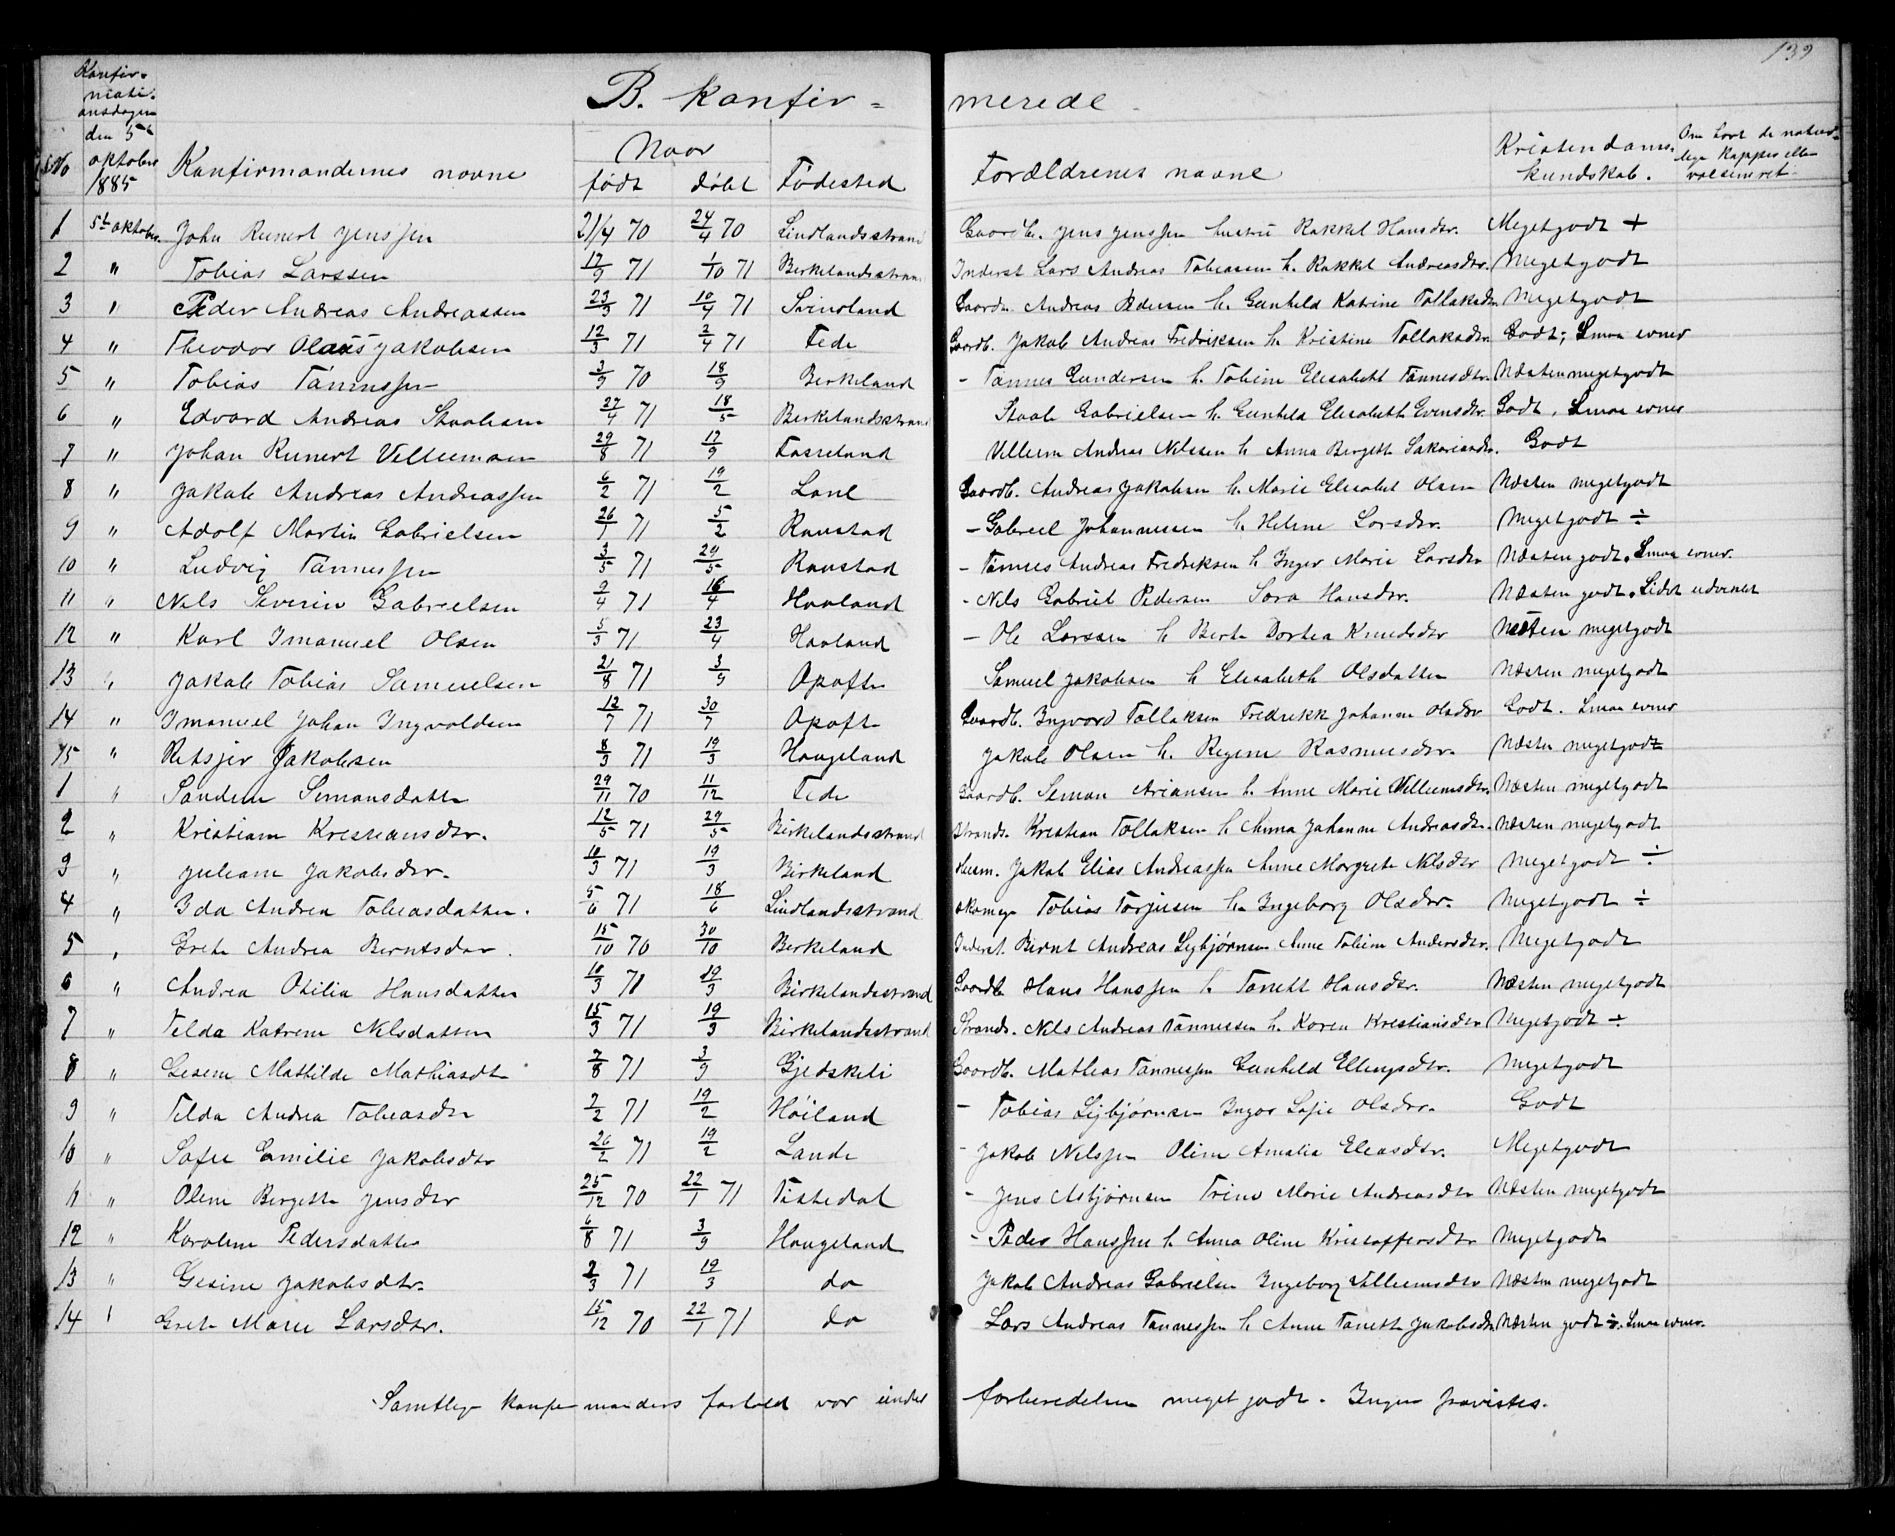 139
Konfir-
mati-
onsdagen
den 5te
oktober
1885
B. Konfir-merede
No Konfirmandernes navne Naar født døbt Fødested Forældrenes navne Kristendoms-kundskab. Om havt de naturlige Kopper eller vaccineret.
1 5te oktober. John Reinert Jenssen 21/4 70 24/4 70 Lindlandsstrand Gaardb. Jens Jenssen hustru Rakkel Hansdtr. Megetgodt +
2 " Tobias Larssen 17/9 71 1/10 71 Birkelandsstrand Inderst Lars Andreas Tobiassen h. Rakkel Andreasdtr. Megetgodt
3 " Peder Andreas Andreassen 23/3 71 10/4 71 Svindland Gaardb. Andreas Pedersen h. Gunhild Katrine Tollaksdtr. Megetgodt
4 " Theodor Olaus Jakobsen 12/3 71 2/4 71 Fede Gaardb. Jakob Andreas Fredriksen h. Kristine Tollaksdtr. Godt; Smaa evner
5 " Tobias Tønnessen 3/9 70 18/9 Birkeland - Tønnes Gundersen h. Tobine Elisabeth Tønnesdtr. Næsten megetgodt
6 " Edvard Andreas Staalesen 27/4 71 18/5 Birkelandsstrand Staale Gabrielsen h. Gunhild Elisabeth Evensdtr. Godt. Smaa evner
7 " Johan Reinert Villumsen 29/8 71 17/9 Fasseland Villum Andreas Nilssen h. Anna Bergitte Sakariasdtr. Godt
8 " Jakob Andreas Andreassen 6/2 71 19/2 Lone Gaardb. Andreas Jakobsen h. Marie Elisabet Olsen Næsten megetgodt
9 " Adolf Martin Gabrielsen 26/1 71 5/2 Raustad - Gabriel Johannessen h. Helene Larsdtr. Megetgodt ÷
10 " Ludvig Tønnessen 3/5 71 29/5 Raustad - Tønnes Andreas Fredriksen h. Inger Marie Larsdtr Næsten godt. Smaa evner.
11 " Nils Severin Gabrielsen 9/4 71 16/4 Haaland - Nils Gabriel Pedersen Sara Hansdtr. Næsten godt. Lidet udviklet
12 " Karl Imanuel Olsen 5/3 71 23/4 Haaland - Ole Larssen h. Berte Dortea Knudsdtr Næsten megetgodt
13 " Jakob Tobias Samuelsen 21/8 71 3/9 Opofte Samuel Jakobsen h. Elisabeth Olsdatter Næsten megetgodt
14 " Imanuel Johan Ingvoldsen 12/7 71 30/7 Opofte Gaardb. Ingvord Tollaksen Fredrikke Johanne Olsdtr Godt. Smaa evner
15 " Retsjer Jakobsen 8/3 71 19/3 Haugeland Jakob Olsen h. Regine Rasmusdtr. Næsten megetgodt
1 " Sandine Simonsdatter 29/11 70 11/12 Fede Gaardb. Simon Ariansen h. Anne Marie Villumsdtr. Næsten megetgodt
2 " Kristiane Kristiansdtr. 12/5 71 29/5 Birkelandsstrand Strands. Kristian Tollaksen h. Anna Johanne Andreasdtr. Næsten megetgodt
3 " Juliane Jakobsdtr. 10/3 71 19/3 Birkeland Husm. Jakob Elias Andreassen Anne Margrete Nilsdtr Megetgodt ÷
4 " Ida Andrea Tobiasdatter. 5/6 71 18/6 Lindlandsstrand Skomgr Tobias Torjusen h. Ingeborg Olsdtr. Megetgodt ÷
5 " Grete Andrea Berntsdtr. 15/10 70 30/10 Birkeland Inderst. Bernt Andreas Sigbjørnsen Anne Tobine Andersdtr. Megetgodt
6 " Andrea Otilia Hansdatter 10/3 71 19/3 Birkelandsstrand Gaardb. Hans Hanssen h. Tønette Hansdtr. Næsten megetgodt
7 " Tilda Katrine Nilsdatter 15/3 71 19/3 Birkelandsstrand Strands. Nils Andreas Tønnessen h. Koren Kristiansdtr Megetgodt ÷
8 " Gesine Mathilde Mathiasdtr 7/8 71 3/9 Gjedskeli Gaardb. Mathias Tønnessen Gunhild Ellingsdtr. Megetgodt
9 " Tilda Andrea Tobiasdtr 7/2 71 19/2 Høiland - Tobias Sigbjørnsen Ingor Sofie Olsdtr. Godt
10 " Sofie Emilie Jakobsdtr 26/2 71 19/2 Lande - Jakob Nilssen Oline Amalia Eliasdtr. Megetgodt
11 " Oline Bergitte Jensdtr 25/12 70 22/1 71 Tistedal - Jens Asbjørnsen Trine Marie Andreasdtr Næsten megetgodt
12 " Karoline Pedersdatter 6/8 71 3/9 Haugeland - Peder Hanssen h. Anna Oline Kristoffersdtr Megetgodt
13 " Gesine Jakobsdtr. 2/3 71 19/3 do Jakob Andreas Gabrielsen Ingeborg Villumsdtr Næsten megetgodt
14 " Grete Marie Larsdtr. 15/12 70 22/1 71 do Lars Andreas Tønnessen h. Anne Tønette Jakobsdtr. Næsten godt ÷. Smaa evner.
Samtlige konfirmanders forhold var under forberedelsen meget godt. Ingen fravistes.